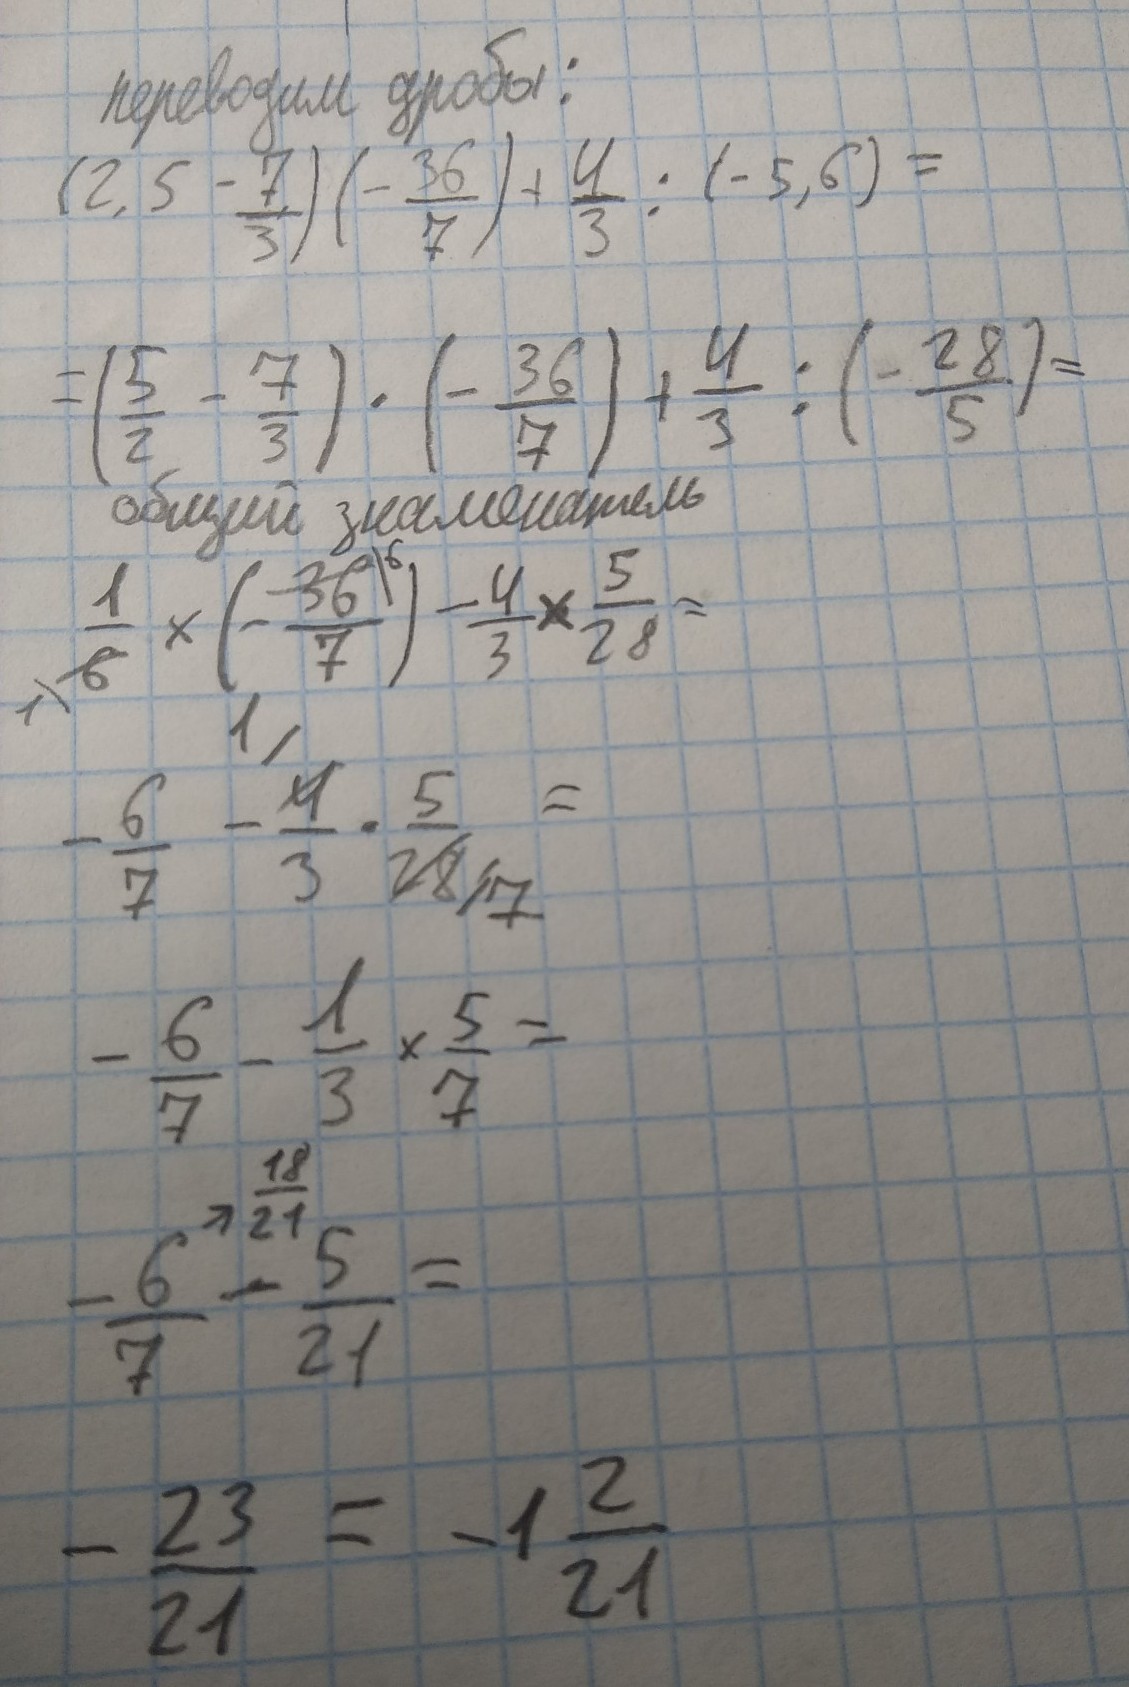 переводим дробы:
(2,5 - 7/3)(- 36/7) + 4/3 : (-5,6) =
= (5/2 - 7/3) · (- 36/7) + 4/3 : (- 28/5) =
общий знаменатель
1/6 × (- 36/7) - 4/3 × 5/28 =
- 6/7 - 4/3 · 5/28 =
- 6/7 - 1/3 × 5/7 =
18/21
- 6/7 - 5/21 =
- 23/21 = -1 2/21